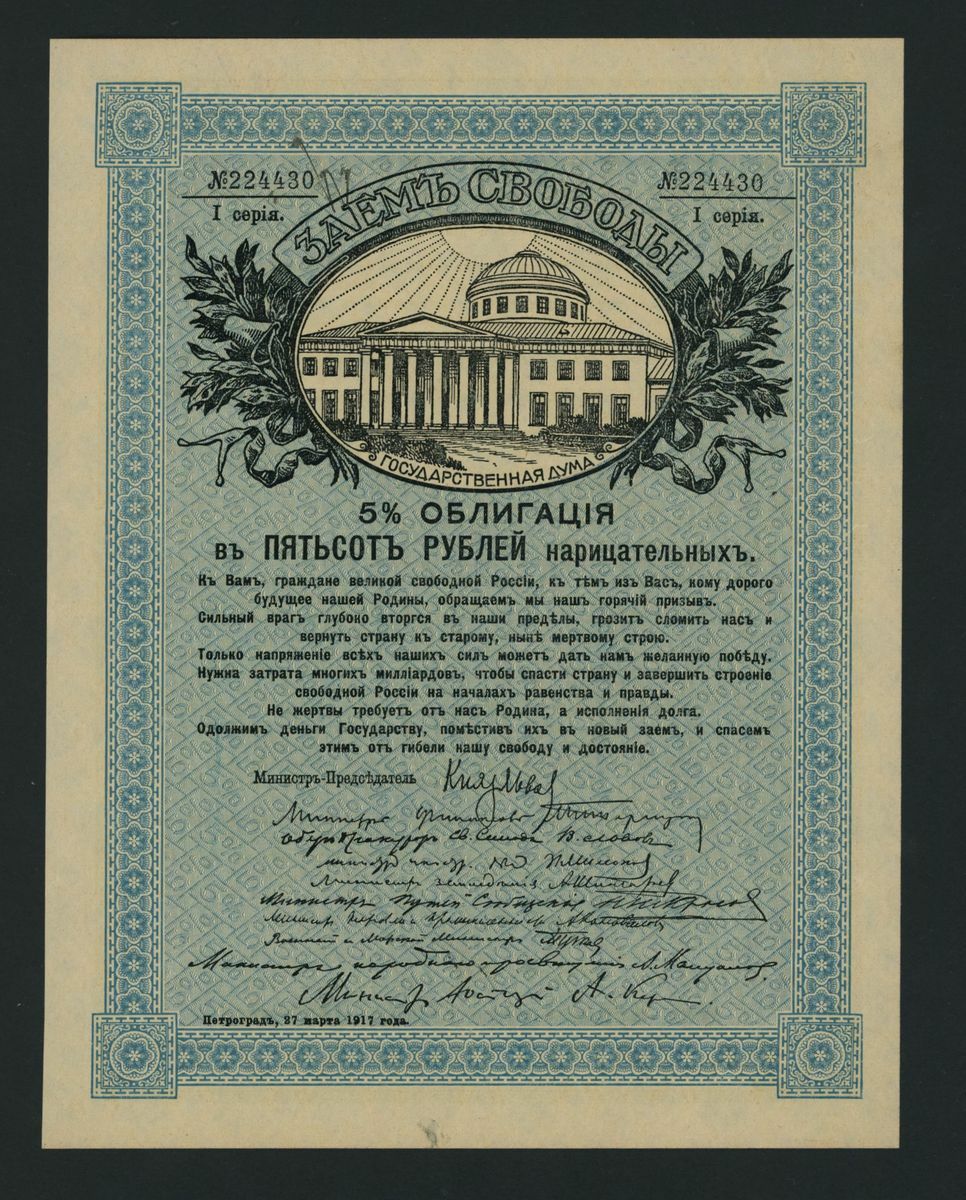 №224430
№224430
I серія.
I серія.
ЗАЕМЪ СВОБОДЫ
ГОСУДАРСТВЕННАЯ ДУМА
5% ОБЛИГАЦІЯ
въ ПЯТЬСОТЪ РУБЛЕЙ нарицательныхъ.
Къ Вамъ, граждане великой свободной Россіи, къ тѣмъ изъ Васъ, кому дорого
будущее нашей Родины, обращаемъ мы нашъ горячій призывъ.
Сильный врагъ глубоко вторгся въ наши предѣлы, грозитъ сломить насъ и
вернуть страну къ старому, нынѣ мертвому строю.
Только напряженіе всѣхъ нашихъ силъ можетъ дать намъ желанную побѣду.
Нужна затрата многихъ милліардовъ, чтобы спасти страну и завершить строеніе
свободной Россіи на началахъ равенства и правды.
Не жертвы требуетъ отъ насъ Родина, а исполненія долга.
Одолжимъ деньги Государству, помѣстивъ ихъ въ новый заемъ, и спасемъ
этимъ отъ гибели нашу свободу и достояніе.
Министръ-Предсѣдатель Князь Львов
Министръ Финансовъ
Оберъ Прокуроръ Св. Синода В. Львовъ
П. Милюков
Министръ земледѣлія А. Шингарев
Министръ Путей Сообщенія Н. Некрасов
Министръ Торговли и Промышленности А. Коновалов
Военный и Морской Министръ
Министръ народного просвѣщенія А. Мануйлов
Министръ Юстиціи А. Кер
Петроградъ, 27 марта 1917 года.